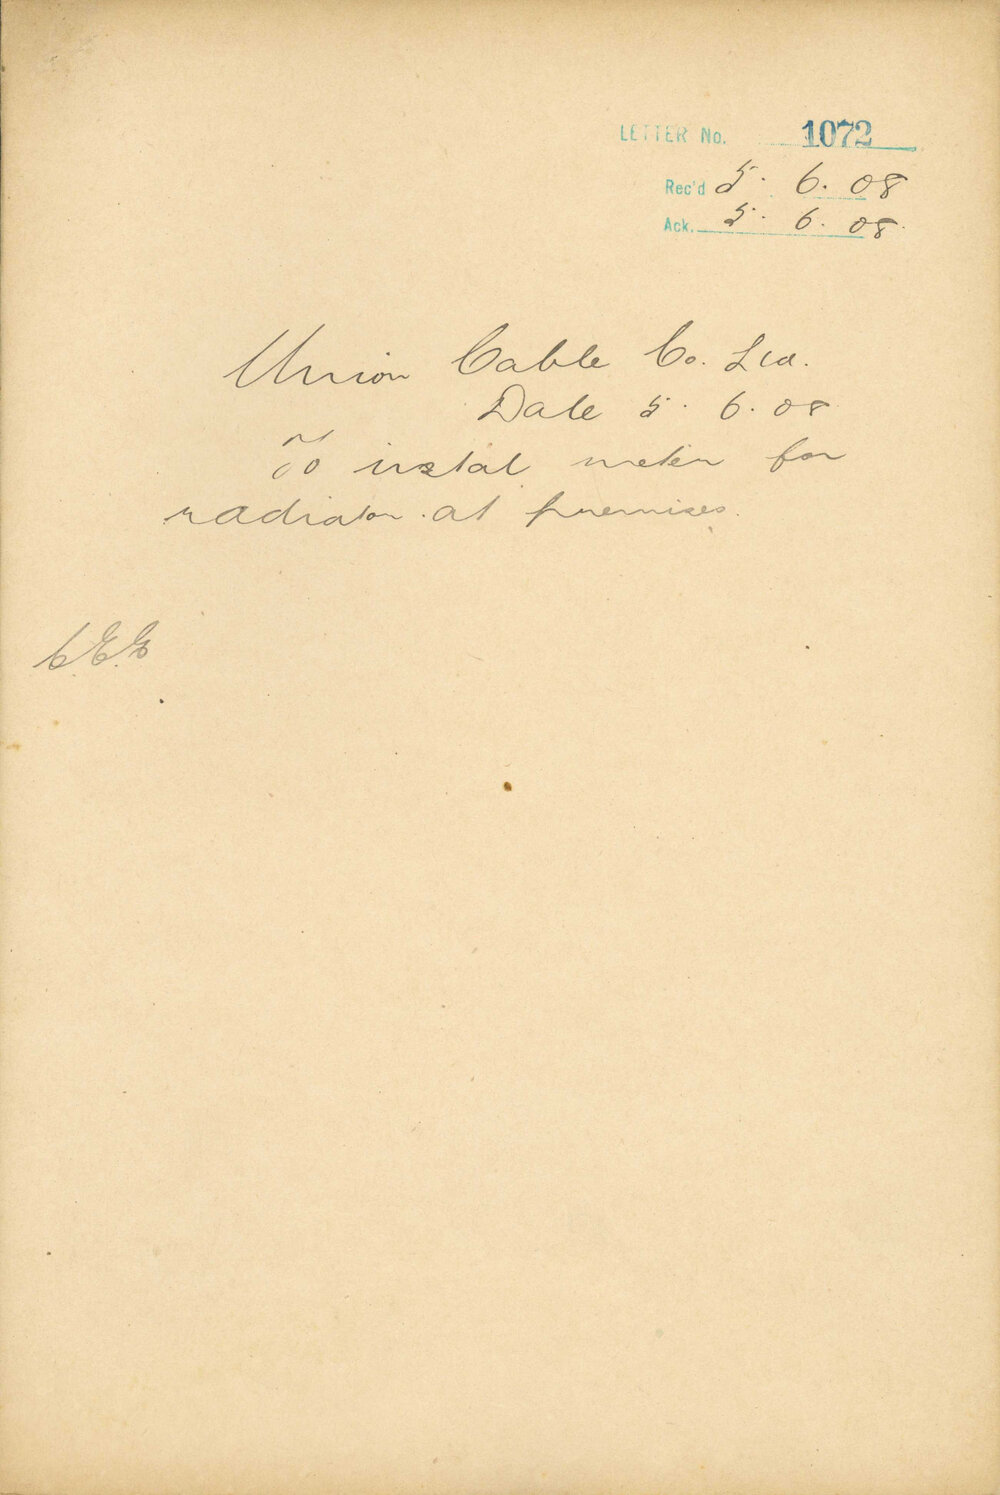 LETTER No. 1072
Rec'd 5. 6. 08
Ack. 5. 6. 08
Union Cable Co. Ltd.
Date 5. 6. 08
To instal meter for
radiator at premises.